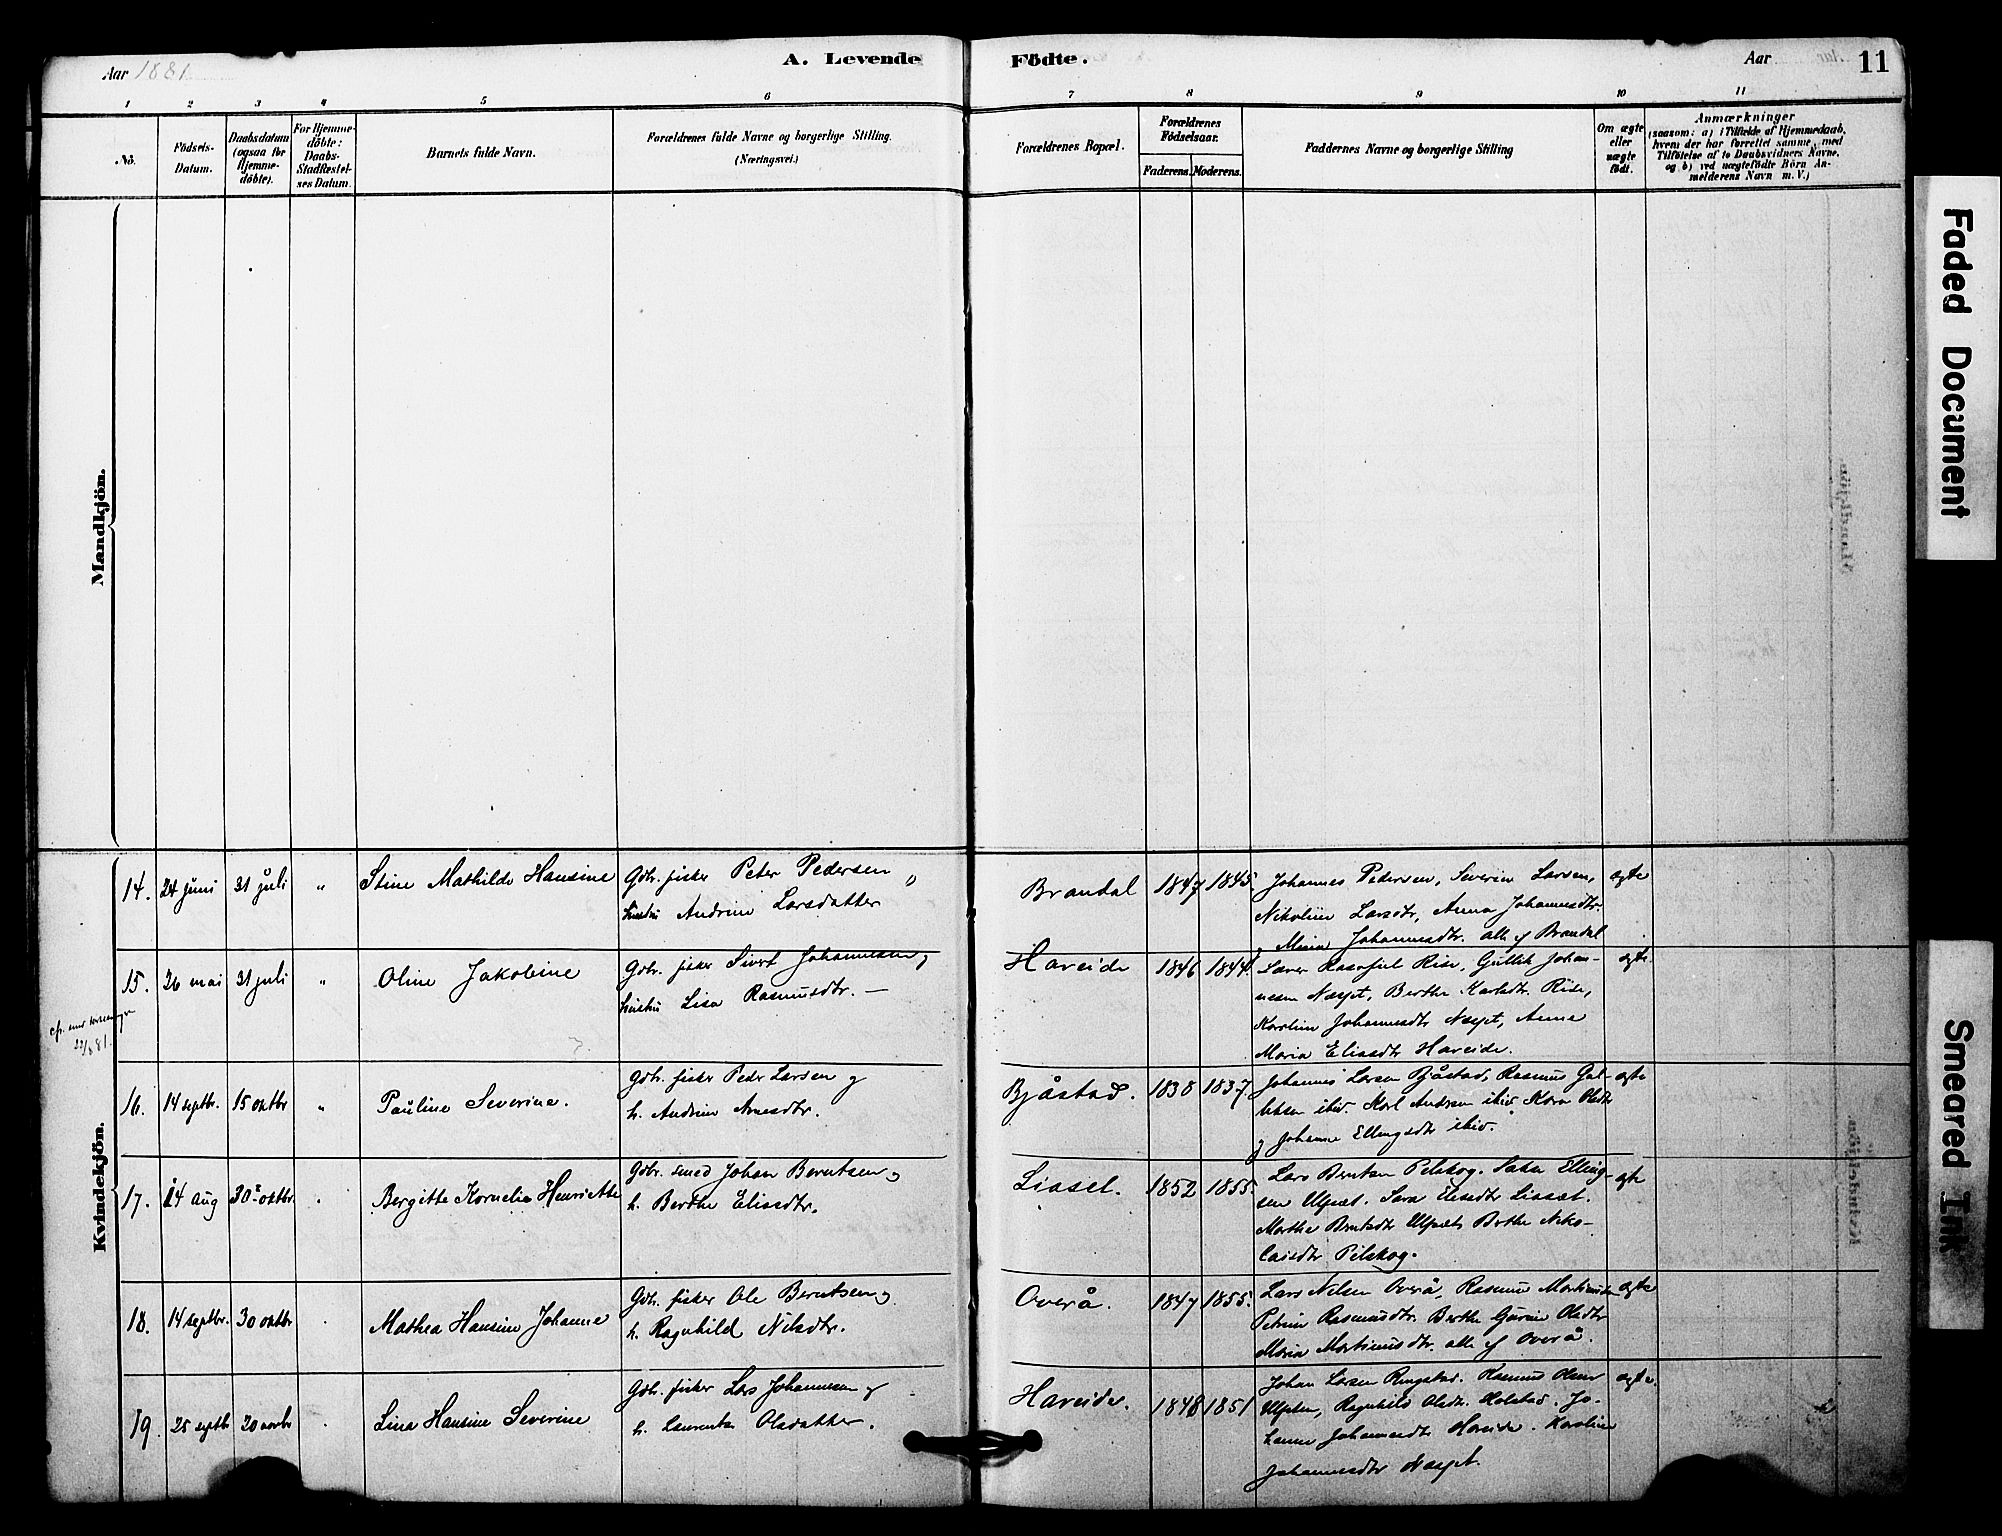 Aar 1881
A. Levende
Födte.
Aar
11
1
2
3
4
5
6
7
8
9
10
11
No.
Födsels-
Datum.
Daabsdatum
(ogsaa for
Hjemme-
döbte).
For Hjemme-
döbte:
Daabs-
Stadfæstel-
ses Datum.
Barnets fulde Navn.
Forældrenes fulde Navne og borgerlige Stilling.
(Næringsvei.)
Forældrenes Bopæl.
Forældrenes
Födselsaar.
Faderens.
Moderens.
Faddernes Navne og borgerlige Stilling
Om ægte
eller
uægte
födt.
Anmærkninger
(saasom: a) i Tilfælde af Hjemmedaab,
hvem der har forrettet samme, med
Tilföielse af to Daabsvidners Navne,
og b) ved uægtefödte Börn An-
melderens Navn m. V.)
Mandkjön.
Kvindekjön.
14. 24 juni 31 juli " Stine Mathilde Hansine
Gdbr. fisker Peter Pedersen og
hustru Andrine Larsdatter
Brandal 1847 1845.
Johannes Pedersen, Severin Larsen,
Nikoline Larsdtr, Anna Johannesdtr.
og Maria Johannesdtr. alle af Brandal
ægte
15. 26 mai 31 juli " Oline Jakobine
Gdbr. fisker Sivert Johannesen og
hustru Lisa Rasmusdtr. —
22/8 81.
Hareide 1846 1844.
Rise, Gullik Johan-
nesen Næset, Berthe Karlsdtr. Rise,
Karoline Johannesdtr Næset, Anna
Maria Eliasdtr Hareide.
ægte.
16. 14 septbr. 15 oktbr " Pauline Severine.
Gdbr. fisker Peder Larsen og
h. Andrine Arnesdtr.
Bjåstad. 1838 1837.
Johannes Larsen Bjåstad, Rasmus
ibid. Karl Andersen ibid. Olsdtr
og Johanne Ellingsdtr ibid.
ægte
17. 14 aug 30 oktbr " Bergitte Kornelia Henriette
Gdbr. smed Johan Berntsen og
h. Berthe Eliasdtr.
Liaset. 1852 1855.
Lars Berntsen Pilskog. Elling-
sen Ulset. Sara Eliasdtr Liaset.
Marthe Berntsdtr Ulset Berthe Niko-
laisdtr Pilskog.
ægte
18. 14 septbr. 30 oktbr . Mathea Hansine Johanne
Gdbr. fisker Ole Berntsen og
h. Ragnhild Nilsdtr.
Overå. 1847 1855.
Lars Nilsen Overå, Rasmus Martinusen
Petrine Rasmusdtr. Berthe Gurine Olsdtr
Maria Martinusdtr. alle af Overå.
ægte
19. 25 septbr 20 novbr . Lina Hansine Severine
Gdbr. fisker Lars Johannesen og
h. Laurentse Olsdatter.
Hareide. 1848 1851
Johan Larsen Ringstad. Rasmus Olsen
Ragnhild Olsdtr. Holstad. Jo-
hanne Johannesdtr Hareide. Karoline
Johannesdtr Næset.
ægte.
Faded Document
Smeared Ink